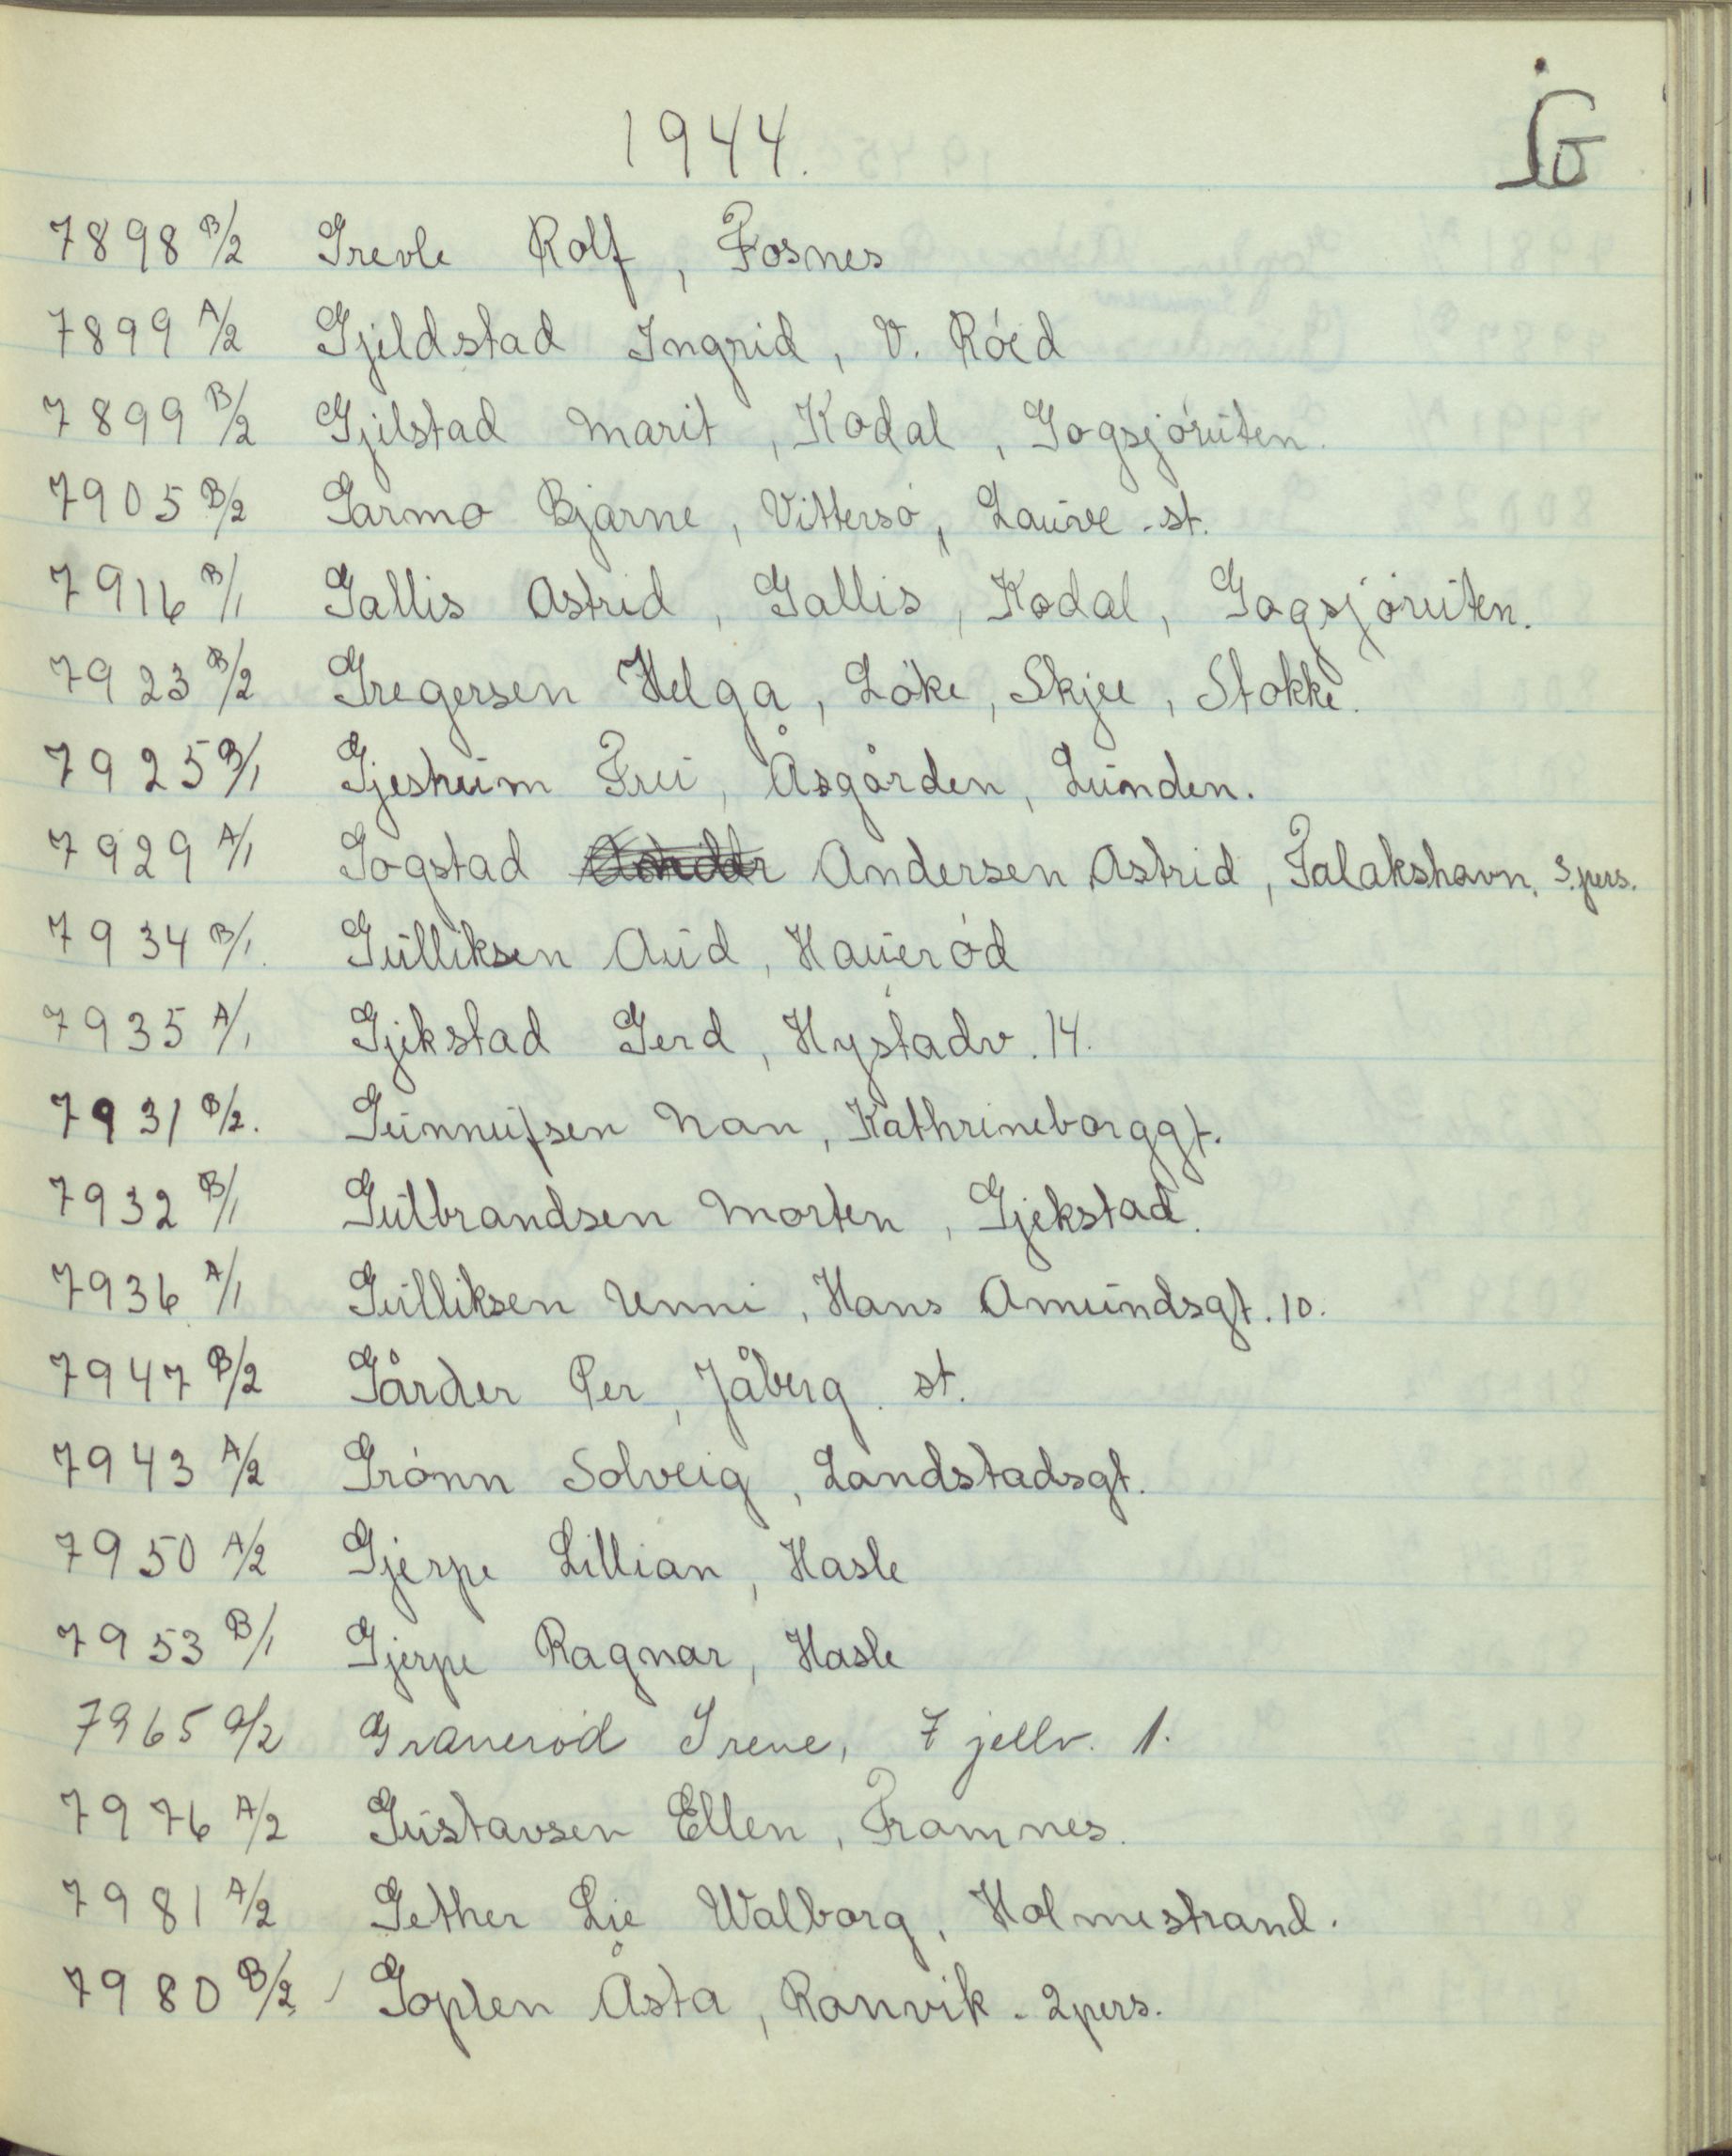 1944.
G
7898 B/2 Grevle Rolf, Fosnes
7899 A/2 Gjeldstad Ingrid, V. Röed
7899 B/2 Gjelstad Marit, Kodal, Gogsjöruten.
7905 B/2 Garmo Bjarne, Vittersö, Lauve-st.
7916 B/1 Gallis Astrid, Gallis, Kodal, Gogsjöruten.
7923 B/2 Gregersen Helga, Löke, Skjee, Stokke.
7925 B/1 Gjesheim Fru, Åsgården, Lunden.
7929 A/1 Gogstad Andersen Astrid, Falakshavn. 3.pers.
7934 B/1. Gulliksen Aud, Haueröd
7935 A/1 Gjekstad Gerd, Hystadv. 14.
7931 B/2. Gunnufsen Nan, Kathrineborggt.
7932 B/1 Gulbrandsen Morten, Gjekstad.
7936 A/1 Gulliksen Unni, Hans Amundsgt. 10.
7947 B/2 Gårder Per, Jåberg st.
7943 A/2 Grönn Solveig, Landstadsgt.
7950 A/2 Gjerpe Lillian, Hasle
7953 B/1 Gjerpe Ragnar, Hasle
7965 a/2 Graneröd Irene, Fjellv. 1.
7976 A/2 Gustavsen Ellen, Framnes.
7981 A/2 Gether Lie Walborg, Holmestrand.
7980 B/2 Goplen Åsta, Ranvik - 2pers.